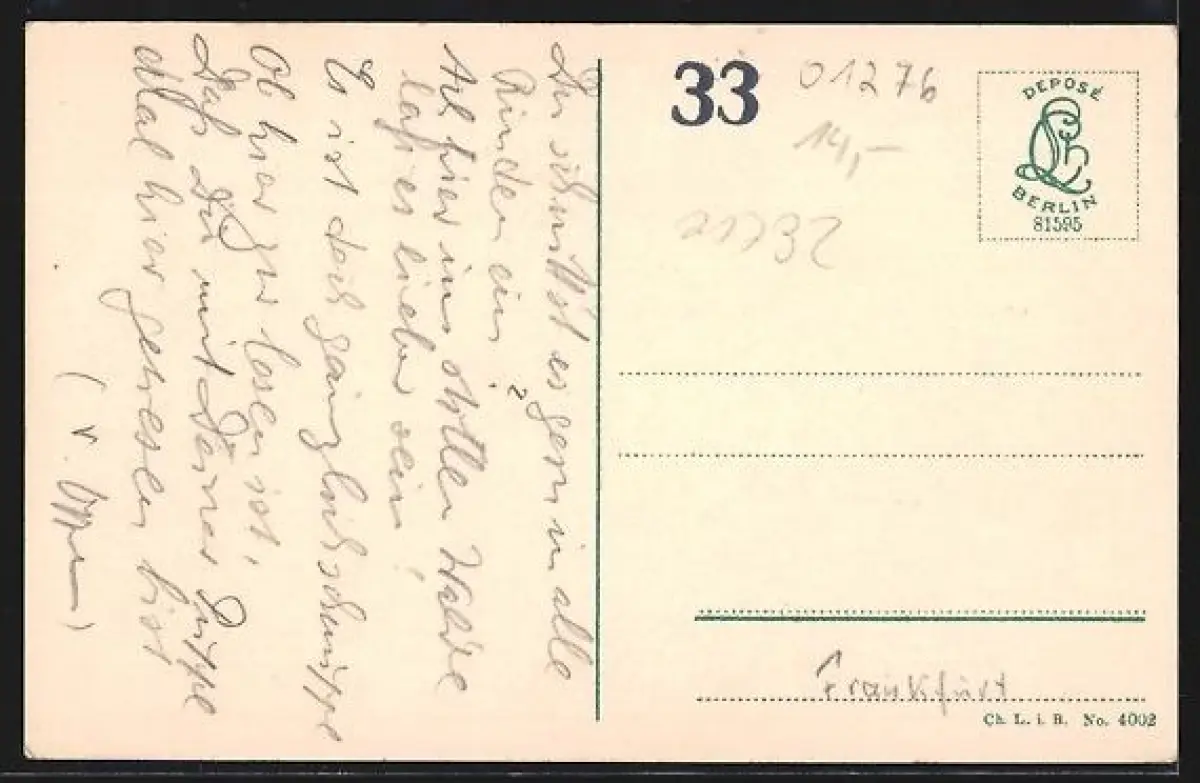 Du schnittst es gern in alle
Rinden ein
Ach hier im stillen Walde
laß es lieber sein!
Es ist doch gänzlich schnuppe
Ob hier zu lesen ist,
Daß Du mit Deiner Puppe
Mal hier gewesen bist
( v.
33
01276
14,-
21732
DEPOSÉ
BERLIN
81595
Frankfurt
Ch. L. i. B. No. 4002